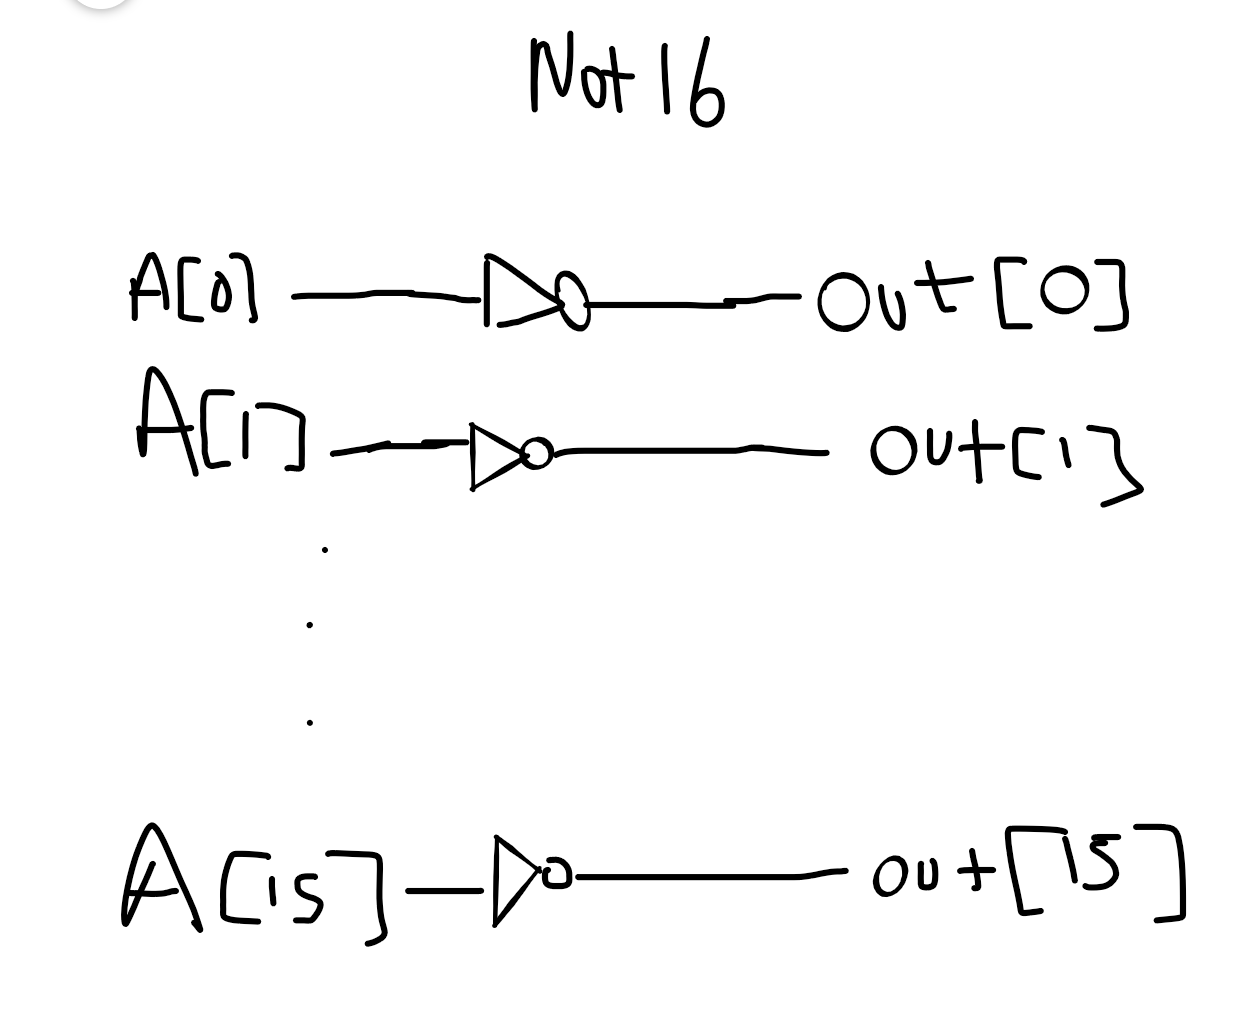 Not 16
A[0] out[0]
A[1] out[1]
A[15] out[15]